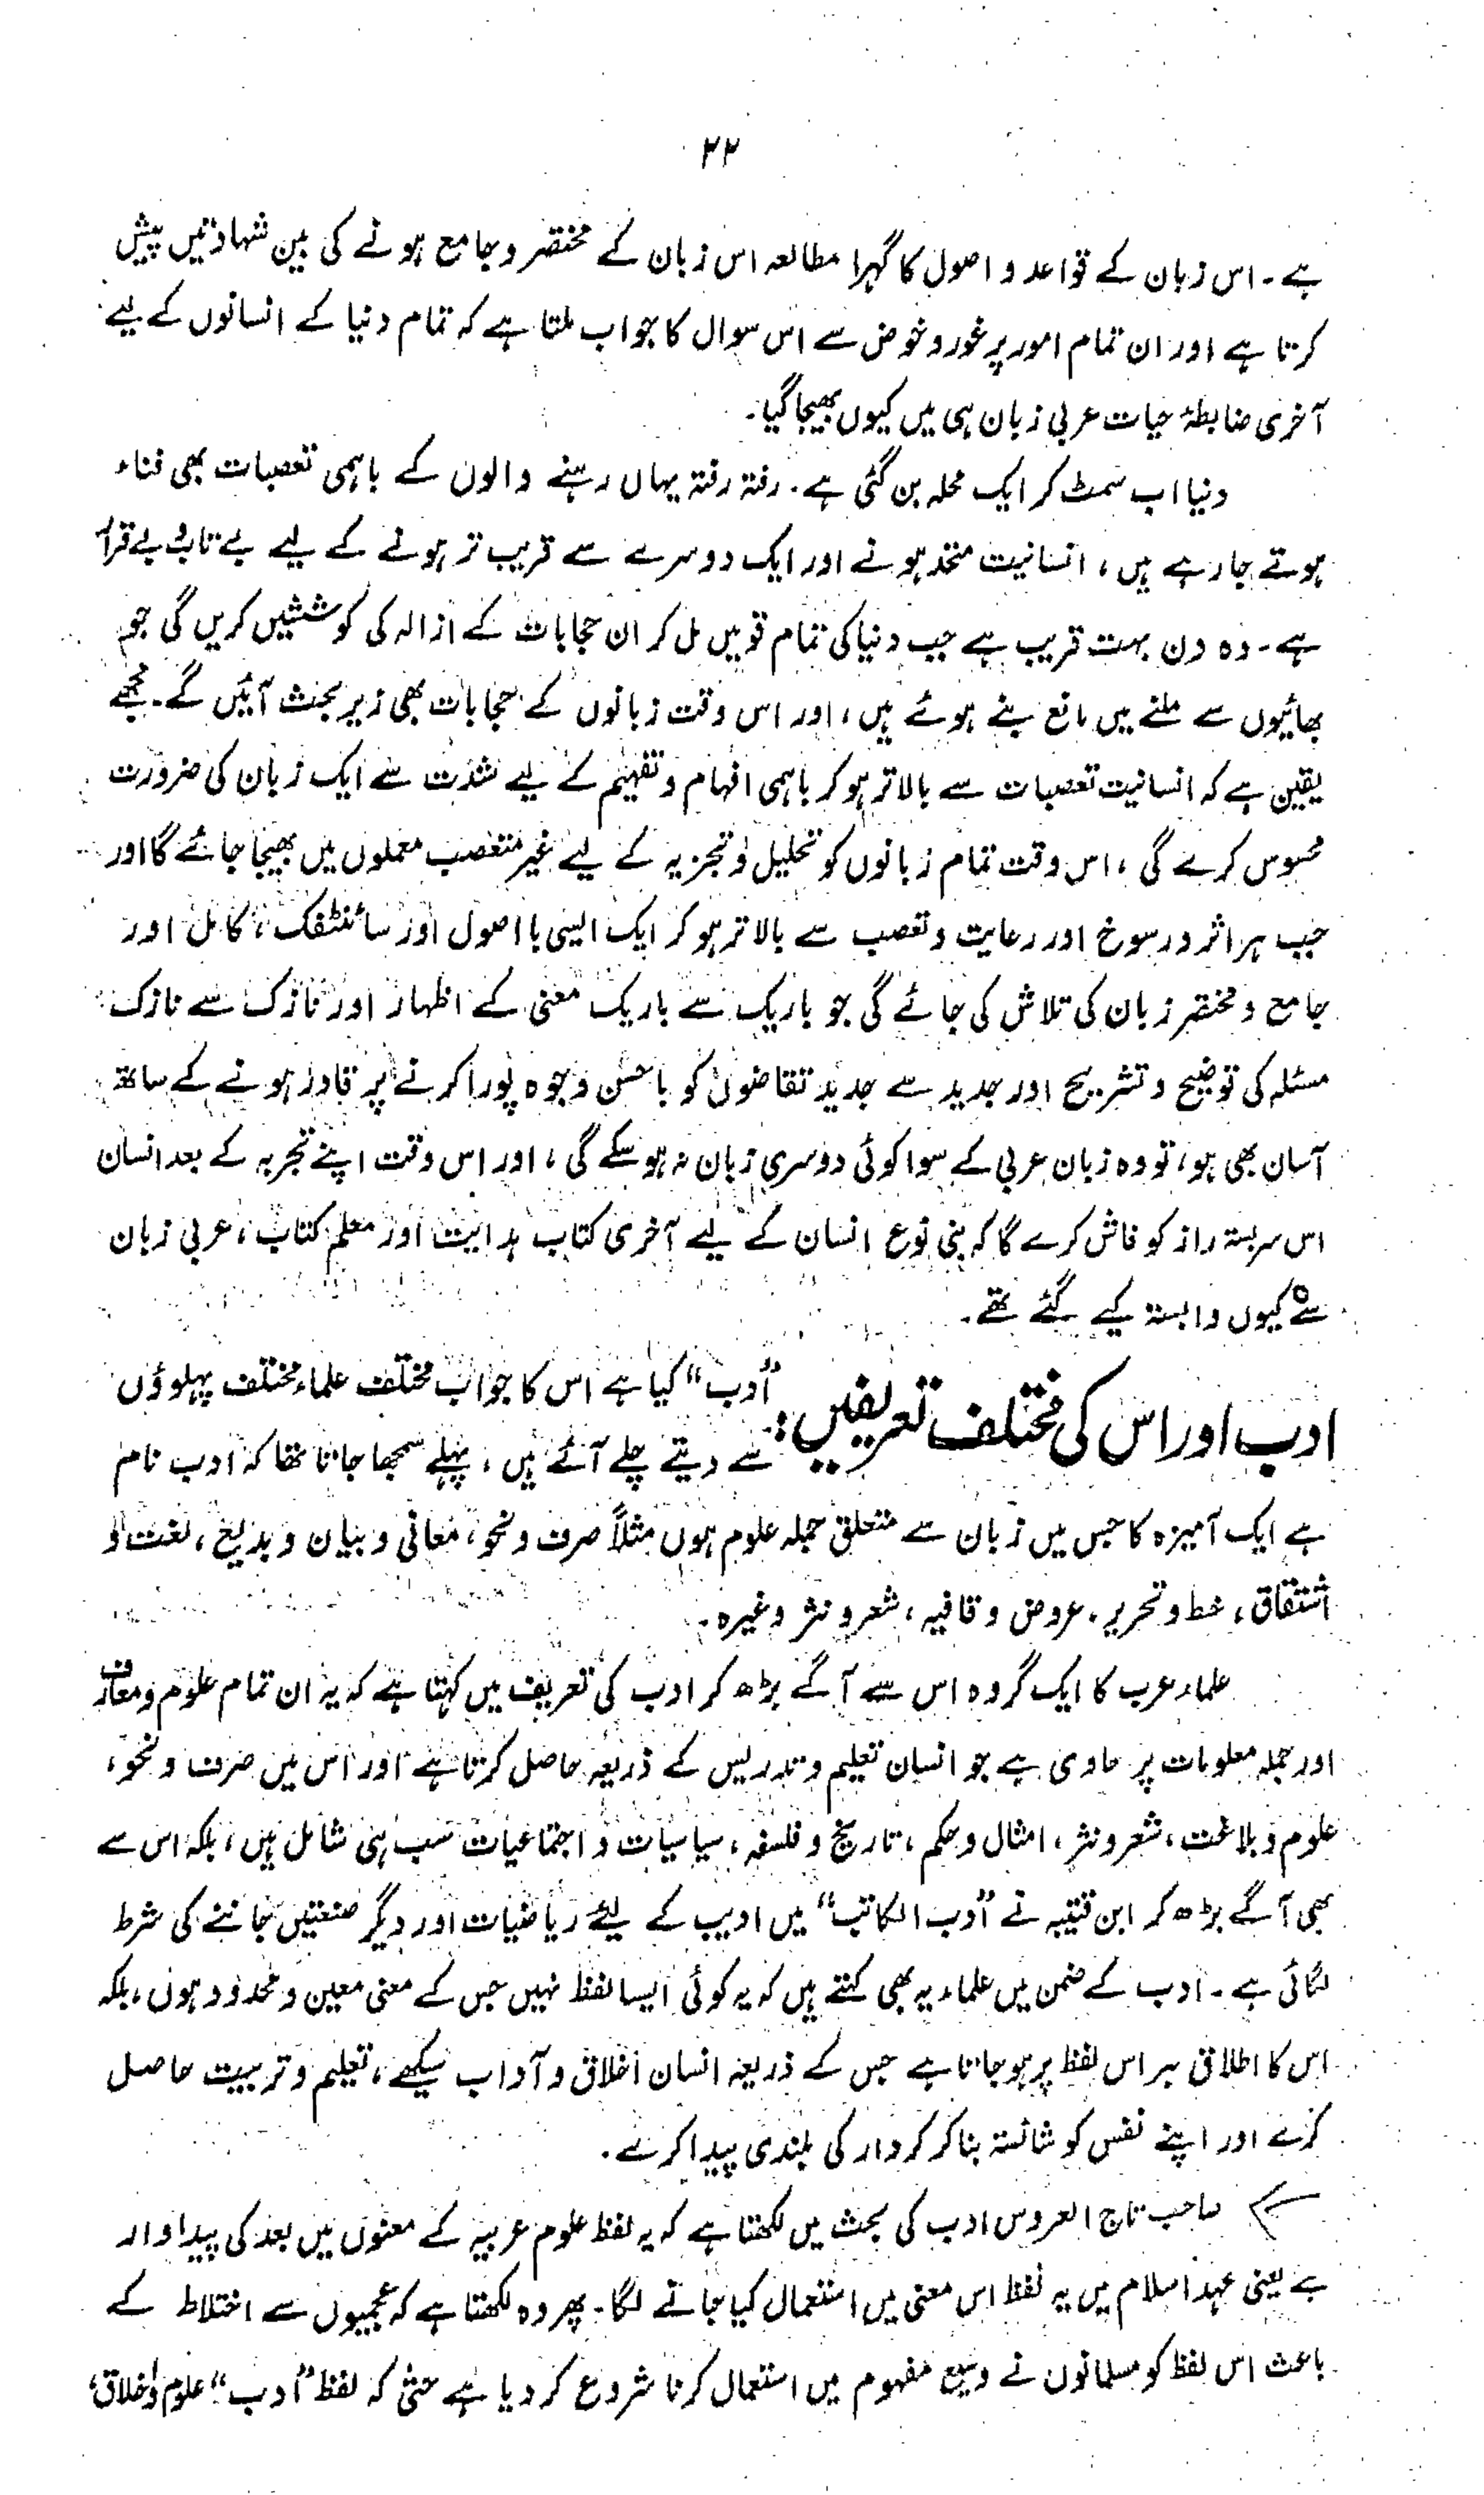 ۲۲
ہے۔ اس زبان کے قواعد و اصول کا گہرا مطالعہ اس زبان کے مختصر و جامع ہونے کی بین شہادتیں پیش
کرتا ہے اور ان تمام امور پر غور و خوض سے اس سوال کا جواب ملتا ہے کہ تمام دنیا کے انسانوں کے لیے
آخری ضابطۂ حیات عربی زبان ہی میں کیوں بھیجا گیا۔
دنیا اب سمٹ کر ایک محلہ بن گئی ہے۔ رفتہ رفتہ یہاں رہنے والوں کے باہمی تعصبات بھی فناء
ہوتے جا رہے ہیں، انسانیت متحد ہونے اور ایک دوسرے سے قریب تر ہونے کے لیے بے تاب و بے قرار
ہے۔ وہ دن بہت قریب ہے جب دنیا کی تمام قومیں مل کر ان حجابات کے ازالہ کی کوششیں کریں گی جو
بھائیوں سے ملنے میں مانع بنے ہوئے ہیں، اور اس وقت زبانوں کے حجابات بھی زیر بحث آئیں گے۔ مجھے
یقین ہے کہ انسانیت تعصبات سے بالاتر ہو کر باہمی افہام و تفہیم کے لیے شدت سے ایک زبان کی ضرورت
محسوس کرے گی، اس وقت تمام زبانوں کو تحلیل و تجزیہ کے لیے غیر متعصب معملوں میں بھیجا جائے گا اور
جب ہر اثر و رسوخ اور رعایت و تعصب سے بالاتر ہو کر ایک ایسی با اصول اور سائنٹفک، کامل اور
جامع و مختصر زبان کی تلاش کی جائے گی جو باریک سے باریک معنی کے اظہار اور نازک سے نازک
مسئلہ کی توضیح و تشریح اور جدید سے جدید تقاضوں کو باحسن وجوہ پورا کرنے پر قادر ہونے کے ساتھ
آسان بھی ہو، تو وہ زبان عربی کے سوا کوئی دوسری زبان نہ ہو سکے گی، اور اس وقت اپنے تجربہ کے بعد انسان
اس سربستہ راز کو فاش کرے گا کہ بنی نوع انسان کے لیے آخری کتاب ہدایت اور معلم کتاب، عربی زبان
سے کیوں وابستہ کیے گئے تھے۔
ادب اور اس کی مختلف تعریفیں:
"ادب" کیا ہے اس کا جواب مختلف علماء مختلف پہلوؤں
سے دیتے چلے آئے ہیں، پہلے سمجھا جاتا تھا کہ ادب نام
ہے ایک آمیزہ کا جس میں زبان سے متعلق جملہ علوم ہوں مثلاً صرف و نحو، معانی و بیان و بدیع، لغت و
اشتقاق، خط و تحریر، عروض و قافیہ، شعر و نثر وغیرہ۔
علماء عرب کا ایک گروہ اس سے آگے بڑھ کر ادب کی تعریف میں کہتا ہے کہ یہ ان تمام علوم و معارف
اور جملہ معلومات پر حاوی ہے جو انسان تعلیم و تدریس کے ذریعہ حاصل کرتا ہے اور اس میں صرف و نحو،
علوم و بلاغت، شعر و نثر، امثال و حکم، تاریخ و فلسفہ، سیاسیات و اجتماعیات سب ہی شامل ہیں، بلکہ اس سے
بھی آگے بڑھ کر ابن قتیبہ نے "ادب الکاتب" میں ادیب کے لیے ریاضیات اور دیگر صنعتیں جاننے کی شرط
لگائی ہے۔ ادب کے ضمن میں علماء یہ بھی کہتے ہیں کہ یہ کوئی ایسا لفظ نہیں جس کے معنی معین و محدود ہوں، بلکہ
اس کا اطلاق ہر اس لفظ پر ہو جاتا ہے جس کے ذریعہ انسان اخلاق و آداب سیکھے، تعلیم و تربیت حاصل
کرے اور اپنے نفس کو شائستہ بنا کر کردار کی بلندی پیدا کرے۔
صاحب تاج العروس ادب کی بحث میں لکھتا ہے کہ یہ لفظ علوم عربیہ کے معنوں میں بعد کی پیداوار
ہے یعنی عہد اسلام میں یہ لفظ اس معنی میں استعمال کیا جانے لگا۔ پھر وہ لکھتا ہے کہ عجمیوں سے اختلاط کے
باعث اس لفظ کو مسلمانوں نے وسیع مفہوم میں استعمال کرنا شروع کر دیا ہے حتیٰ کہ لفظ "ادب" علوم و اخلاق،